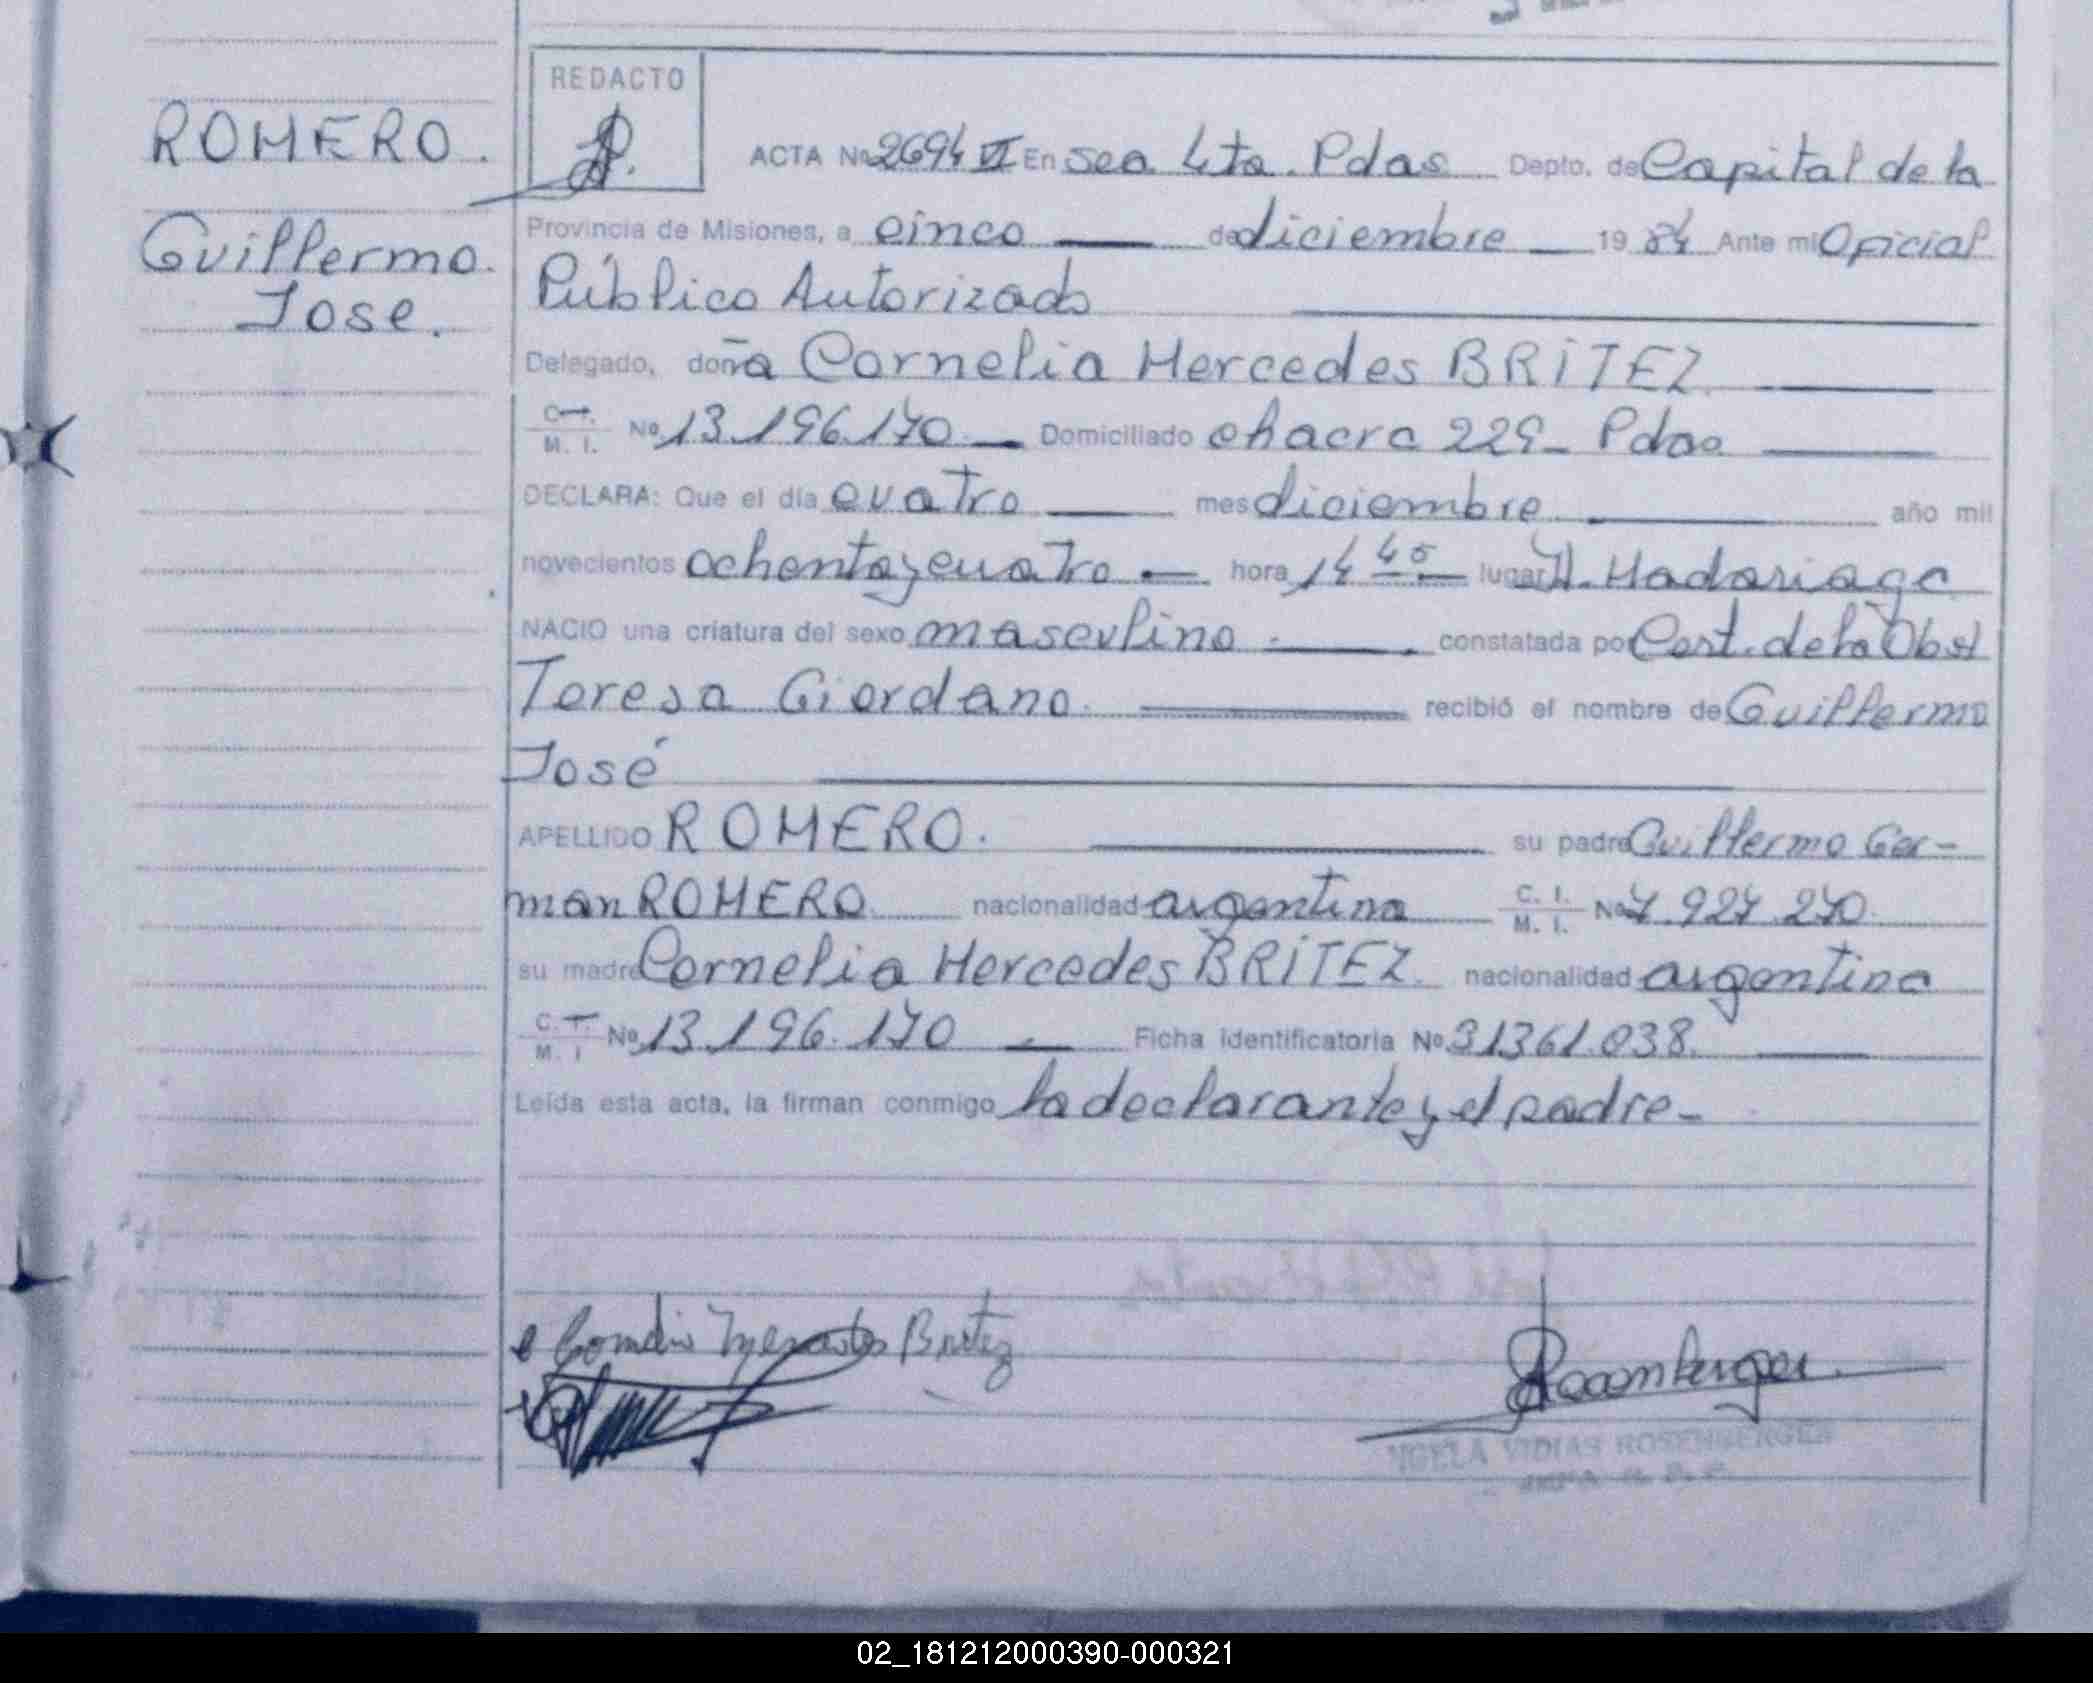 REDACTO
ROMERO.
Guillermo
Jose.
ACTA No 2694 VI En sec 4ta. Pdas Depto. de Capital de la
Provincia de Misiones, a cinco de diciembre 19 84 Ante mi Oficial
Público Autorizado
Delegado, doña Cornelia Mercedes BRITEZ
C. I. M. I. No 13.196.170 Domiciliado chacra 229 - Pdas
DECLARA: Que el día cuatro mes diciembre año mil
novecientos ochenta y cuatro hora 14 45 lugar H. Madariaga
NACIO una criatura del sexo masculino constatada por Cert. de la Obst
Teresa Giordano recibió el nombre de Guillermo
José
APELLIDO ROMERO. su padre Guillermo Ger-
man ROMERO nacionalidad argentina C. I. M. I. No 7.927.270
su madre Cornelia Mercedes BRITEZ nacionalidad argentina
C. I. M. I No 13.196.170 Ficha identificatoria No 31361.038.
Leída esta acta, la firman conmigo la declarante y el padre -
Cornelia Mercedes Britez
Rosemberger
NGELA VIDIAS ROSENBERGER
02_181212000390-000321